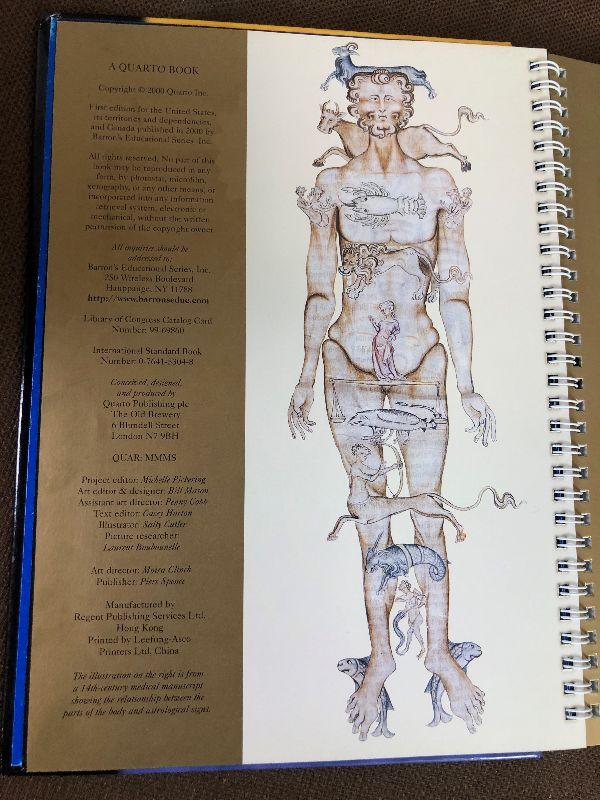 A QUARTO BOOK
Copyright © 2000 Quarto Inc.
First edition for the United States,
its territories and dependencies,
and Canada published in 2000 by
Barron's Educational Series, Inc.
All rights reserved. No part of this
book may be reproduced in any
form, by photostat, microfilm,
xerography, or any other means, or
incorporated into any information
retrieval system, electronic or
mechanical, without the written
permission of the copyright owner.
All inquiries should be
addressed to:
Barron's Educational Series, Inc.
250 Wireless Boulevard
Hauppauge, NY 11788
http://www.barronseduc.com
Library of Congress Catalog Card
Number: 99-69860
International Standard Book
Number: 0-7641-5304-8
Conceived, designed,
and produced by
Quarto Publishing plc
The Old Brewery
6 Blundell Street
London N7 9BH
QUAR: MMMS
Project editor: Michelle Pickering
Art editor & designer: Bill Mason
Assistant art director: Penny Cobb
Text editor: Casey Horton
Illustrator: Sally Cutler
Picture researcher:
Laurent Boubounelle
Art director: Moira Clinch
Publisher: Piers Spence
Manufactured by
Regent Publishing Services Ltd,
Hong Kong
Printed by Leefung-Asco
Printers Ltd, China
The illustration on the right is from
a 14th-century medical manuscript
showing the relationship between the
parts of the body and astrological signs.